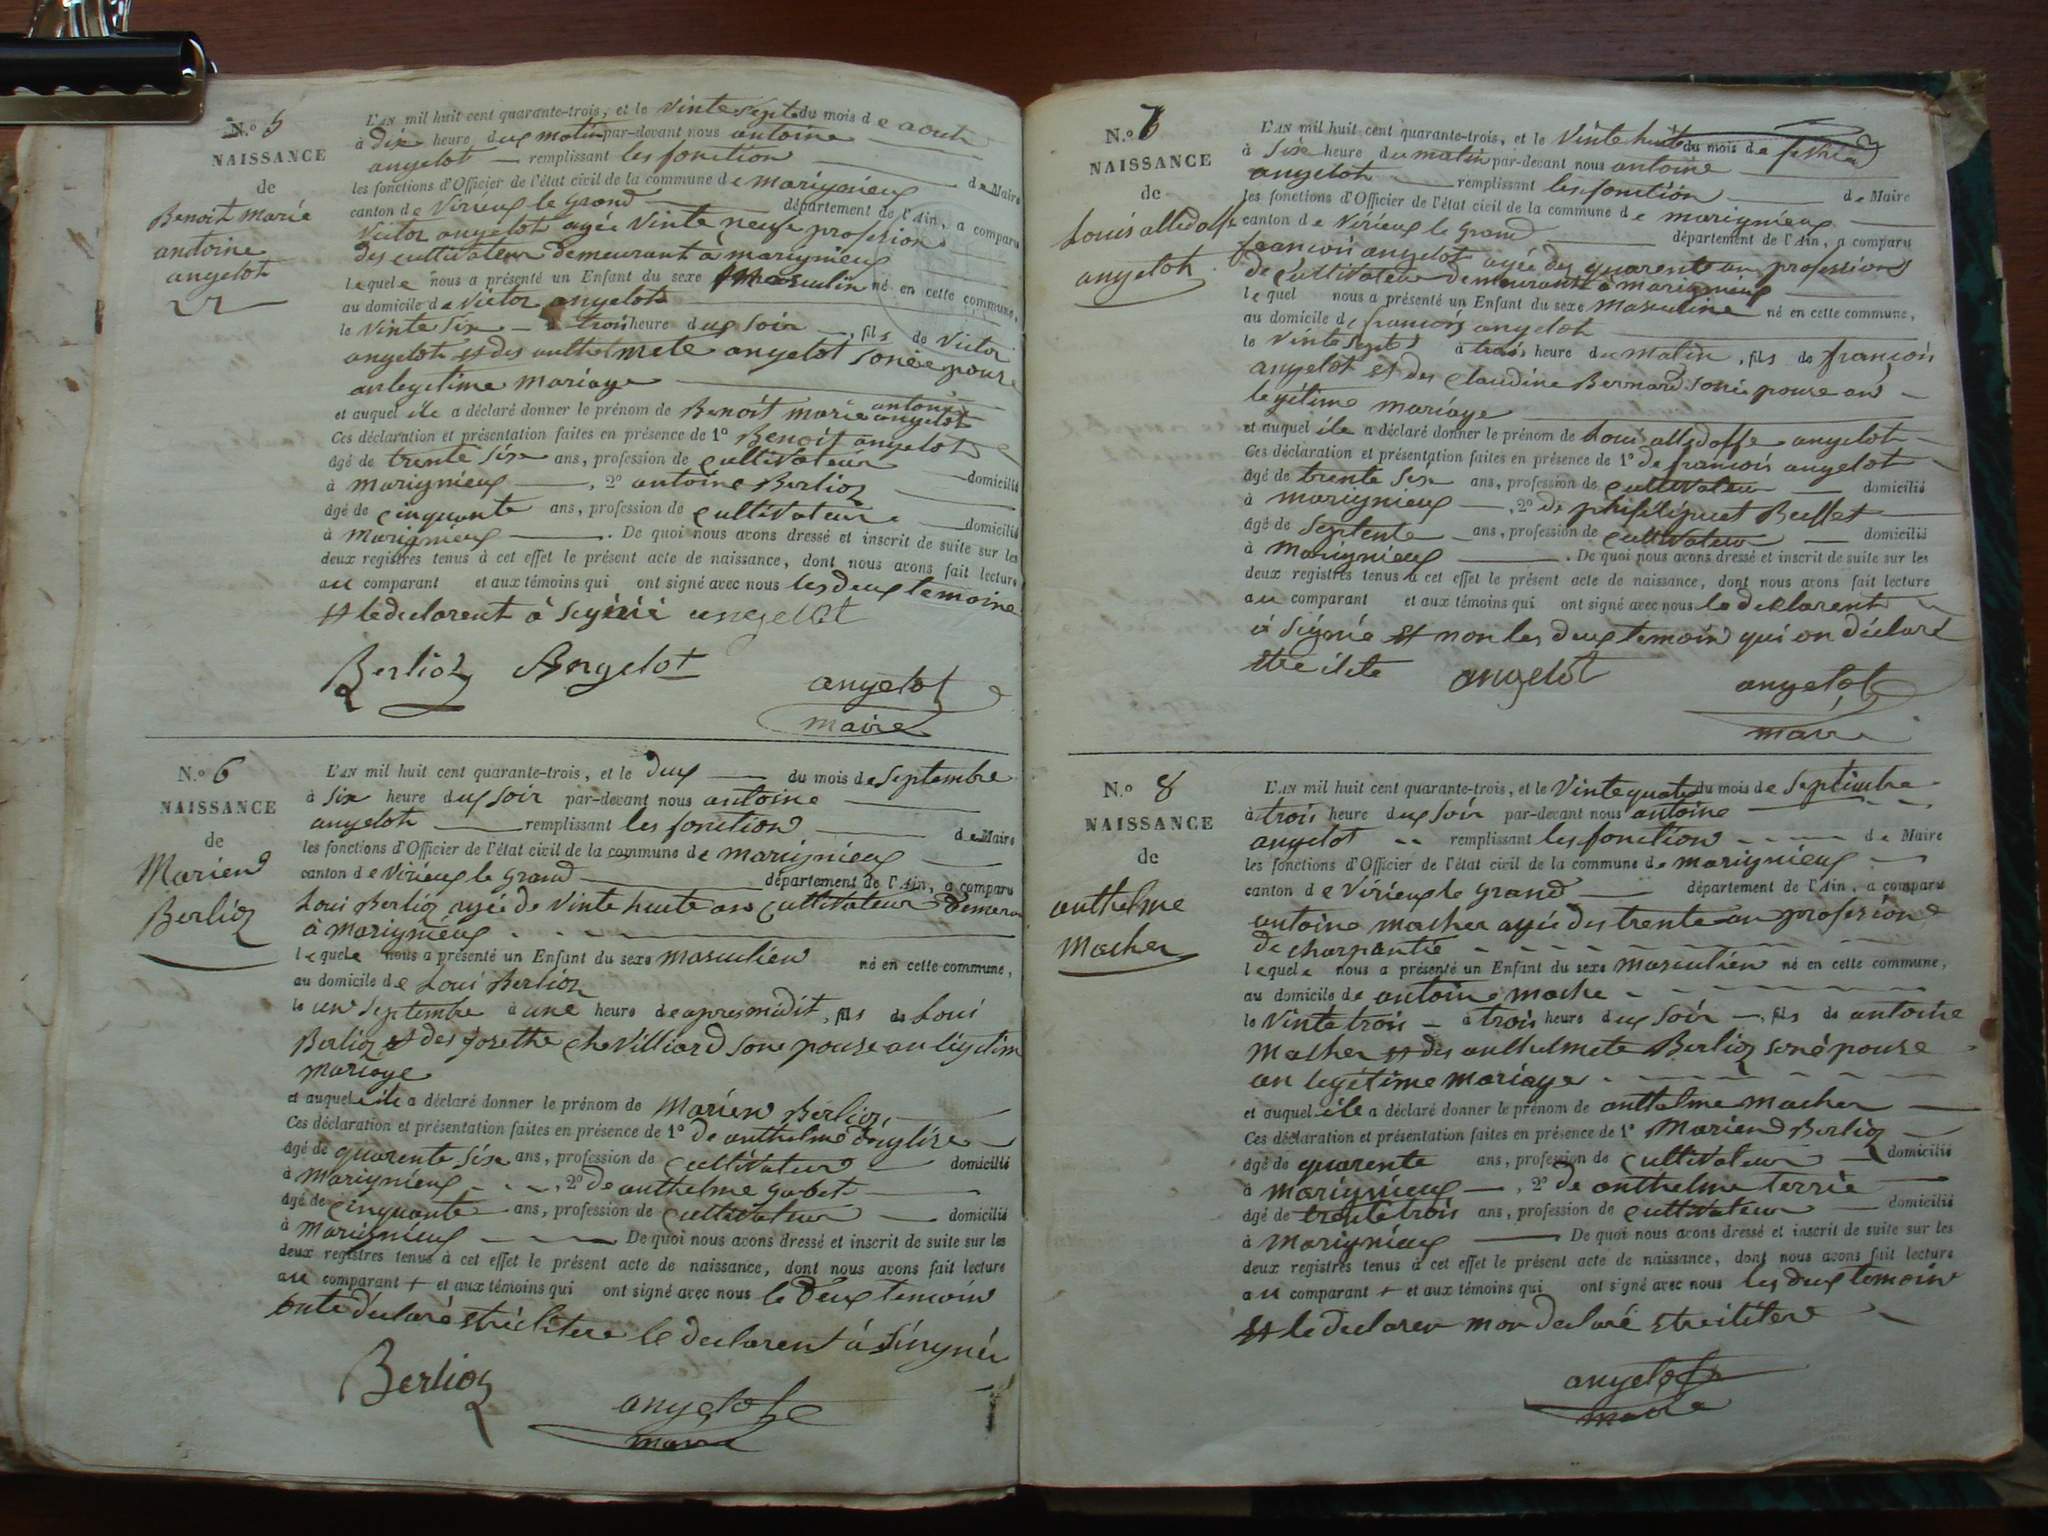 N.º 5
NAISSANCE
de
Benoit marie
antoine
angelot
L'AN mil huit cent quarante-trois, et le vinte sept du mois de aout
à dix heure deux matin par-devant nous antoine
angelot remplissant les fonction de Maire
les fonctions d'Officier de l'état civil de la commune de marignieux
canton de Virieux le grand département de l'Ain, a comparu
victor angelot agée vinte neufe profession
des cultivateur demeurant à marignieux
lequele nous a présenté un Enfant du sexe masculin né en cette commune,
au domicile de victor angelot
le vinte six à trois heure deux soir, fils de victor
angelot et des anthelmete angelot soneepouse
an legitime mariage
et auquel ile a déclaré donner le prénom de Benoit marie antoine angelot
Ces déclaration et présentation faites en présence de 1º Benoit angelot
âgé de trente six ans, profession de cultivateur domicilié
à marignieux, 2º antoine Berlioz
âgé de cinquante ans, profession de cultivateur domicilié
à marignieux. De quoi nous avons dressé et inscrit de suite sur les
deux registres tenus à cet effet le présent acte de naissance, dont nous avons fait lecture
au comparant et aux témoins qui ont signé avec nous les deux temoine
et le declarent à signié angelot
Berlioz Angelot angelot
maire
N.º 6
NAISSANCE
de
Marien
Berlioz
L'AN mil huit cent quarante-trois, et le deux du mois de Septembre
à six heure deux soir par-devant nous antoine
angelot remplissant les fonction de Maire
les fonctions d'Officier de l'état civil de la commune de marignieux
canton de Virieux le grand département de l'Ain, a comparu
Loui Berlioz agée de vinte huite ans cultivateur demeran
à marignieux
lequele nous a présenté un Enfant du sexe masculien né en cette commune,
au domicile de Loui Berlioz
le un septembre à une heure de apresmidit, fils de Loui
Berlioz et des josethe cheVilliard sone pouse an legitim
mariage
et auquel ile a déclaré donner le prénom de Marien Berlioz
Ces déclaration et présentation faites en présence de 1º de anthelme déglize
âgé de quarente six ans, profession de cultivateur domicilié
à marignieux, 2º de anthelme gubet
âgé de cinquante ans, profession de cultivateur domicilié
à marignieux De quoi nous avons dressé et inscrit de suite sur les
deux registres tenus à cet effet le présent acte de naissance, dont nous avons fait lecture
au comparant + et aux témoins qui ont signé avec nous le deux temoin
onte déclaré etre ilitere le declarent à singnér
Berlioz angelot
maire
N.º 7
NAISSANCE
de
Louis alledolfe
angelot
L'AN mil huit cent quarante-trois, et le vinte huite du mois de
à six heure du matin par-devant nous antoine
angelot remplissant les fonction de Maire
les fonctions d'Officier de l'état civil de la commune de marignieux
canton de Virieux le grand département de l'Ain, a comparu
françois angelot agée des quarente an profession
de cultivateur demeurant à marignieux
lequel nous a présenté un Enfant du sexe masculine né en cette commune,
au domicile de françois angelot
le vinte sept à trois heure du matin, fils de françois
angelot et des claudine Bernard sone pouse an
legitime mariage
et auquel ile a déclaré donner le prénom de Loui alledoffe angelot
Ces déclaration et présentation faites en présence de 1º de françois angelot
âgé de trente six ans, profession de cultivateur domicilié
à marignieux, 2º de Buffet
âgé de septente ans, profession de cultivateur domicilié
à marignieux. De quoi nous avons dressé et inscrit de suite sur les
deux registres tenus à cet effet le présent acte de naissance, dont nous avons fait lecture
au comparant et aux témoins qui ont signé avec nous le declarent
à signié et non les deux temoin qui on déclaré
etre ilete angelot angelot
maire
N.º 8
NAISSANCE
de
anthelme
Macher
L'AN mil huit cent quarante-trois, et le Vinte quatre du mois de Septembre
à trois heure deux soir par-devant nous antoine
angelot remplissant les fonction de Maire
les fonctions d'Officier de l'état civil de la commune de marignieux
canton de Virieux le grand département de l'Ain, a comparu
antoine macher agée des trente an profession
de charpantie
lequele nous a présenté un Enfant du sexe masculien né en cette commune,
au domicile de antoine mache
le vinte trois à trois heure deux soir, fils de antoine
Macher et des anthelmete Berlioz soné pouse
an legitime mariage
et auquel ile a déclaré donner le prénom de anthelme macher
Ces déclaration et présentation faites en présence de 1º Marien Berlioz
âgé de quarente ans, profession de cultivateur domicilié
à marignieux, 2º de anthelme terrié
âgé de trente trois ans, profession de cultivateur domicilié
à marignieux De quoi nous avons dressé et inscrit de suite sur les
deux registres tenus à cet effet le présent acte de naissance, dont nous avons fait lecture
au comparant + et aux témoins qui ont signé avec nous les deux temoin
et le declaren mon declaré etre ilitere
angelot
maire